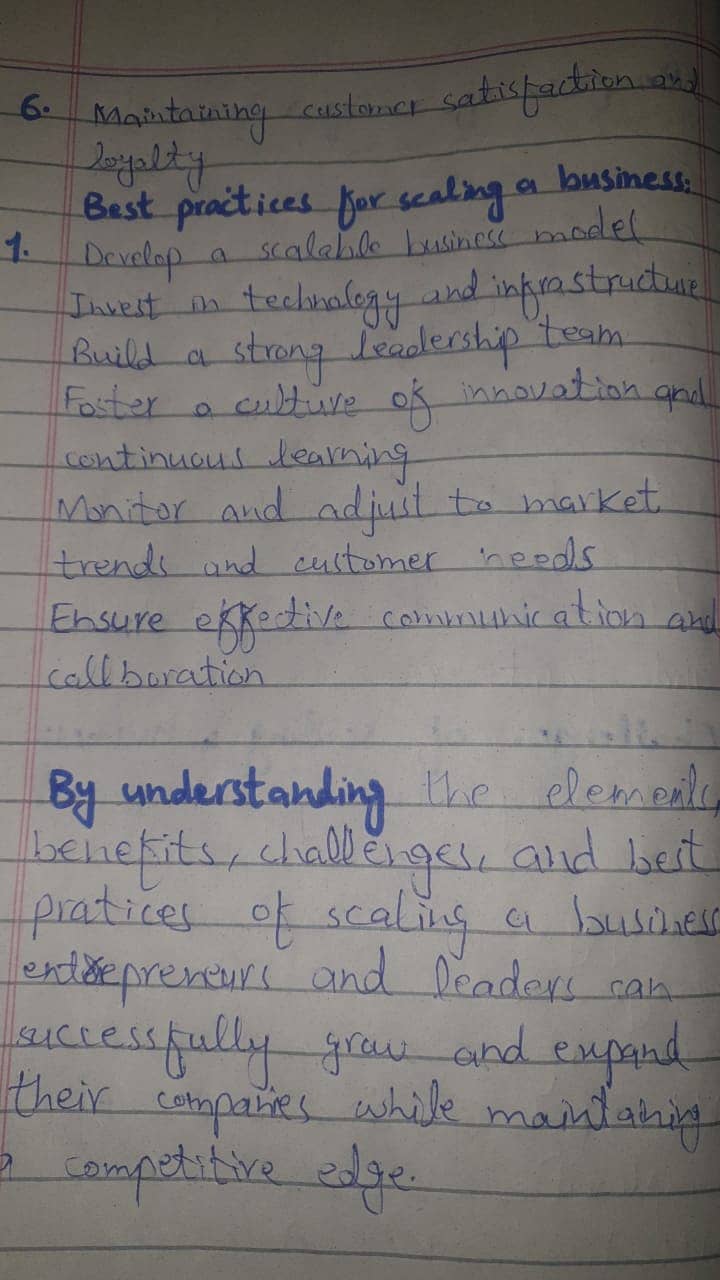 6. Maintaining customer satisfaction and
loyalty
Best practices for scaling a business:
1. Develop a scalable business model
Invest in technology and infrastructure
Build a strong leadership team
Foster a culture of innovation and
continuous learning
Monitor and adjust to market
trends and customer needs
Ensure effective communication and
callboration
By understanding the elements,
benefits, challenges, and best
pratices of scaling a business
entrepreneurs and leaders can
successfully grow and expand
their companies while maintaning
a competitive edge.